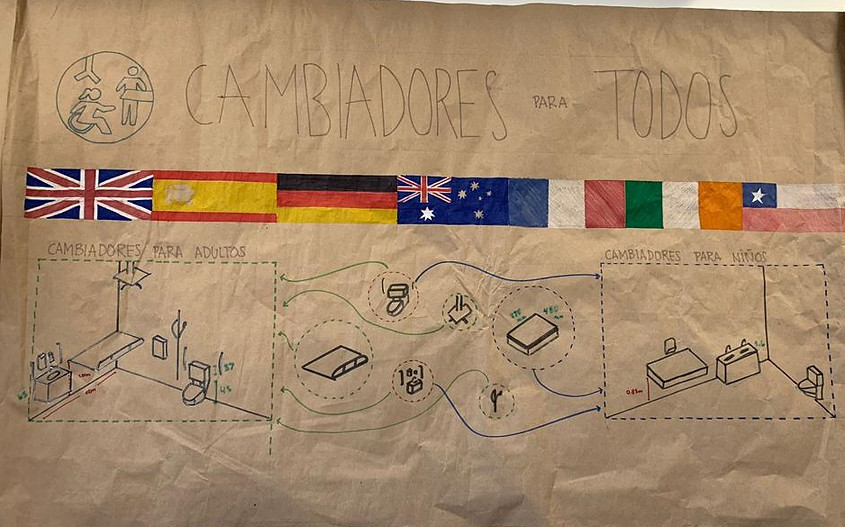 CAMBIADORES PARA TODOS
CAMBIADORES PARA ADULTOS
CAMBIADORES PARA NIÑOS
37
45